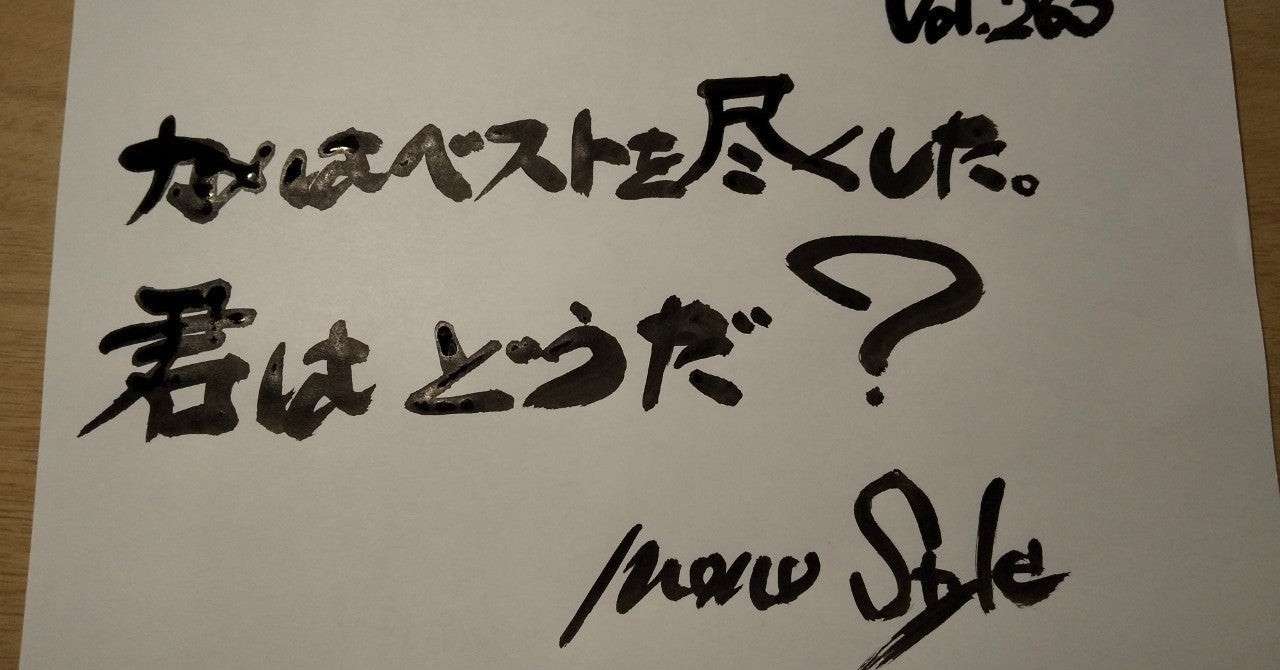 Vol.263
なはベストを尽くした。
君はどうだ?
mono Style